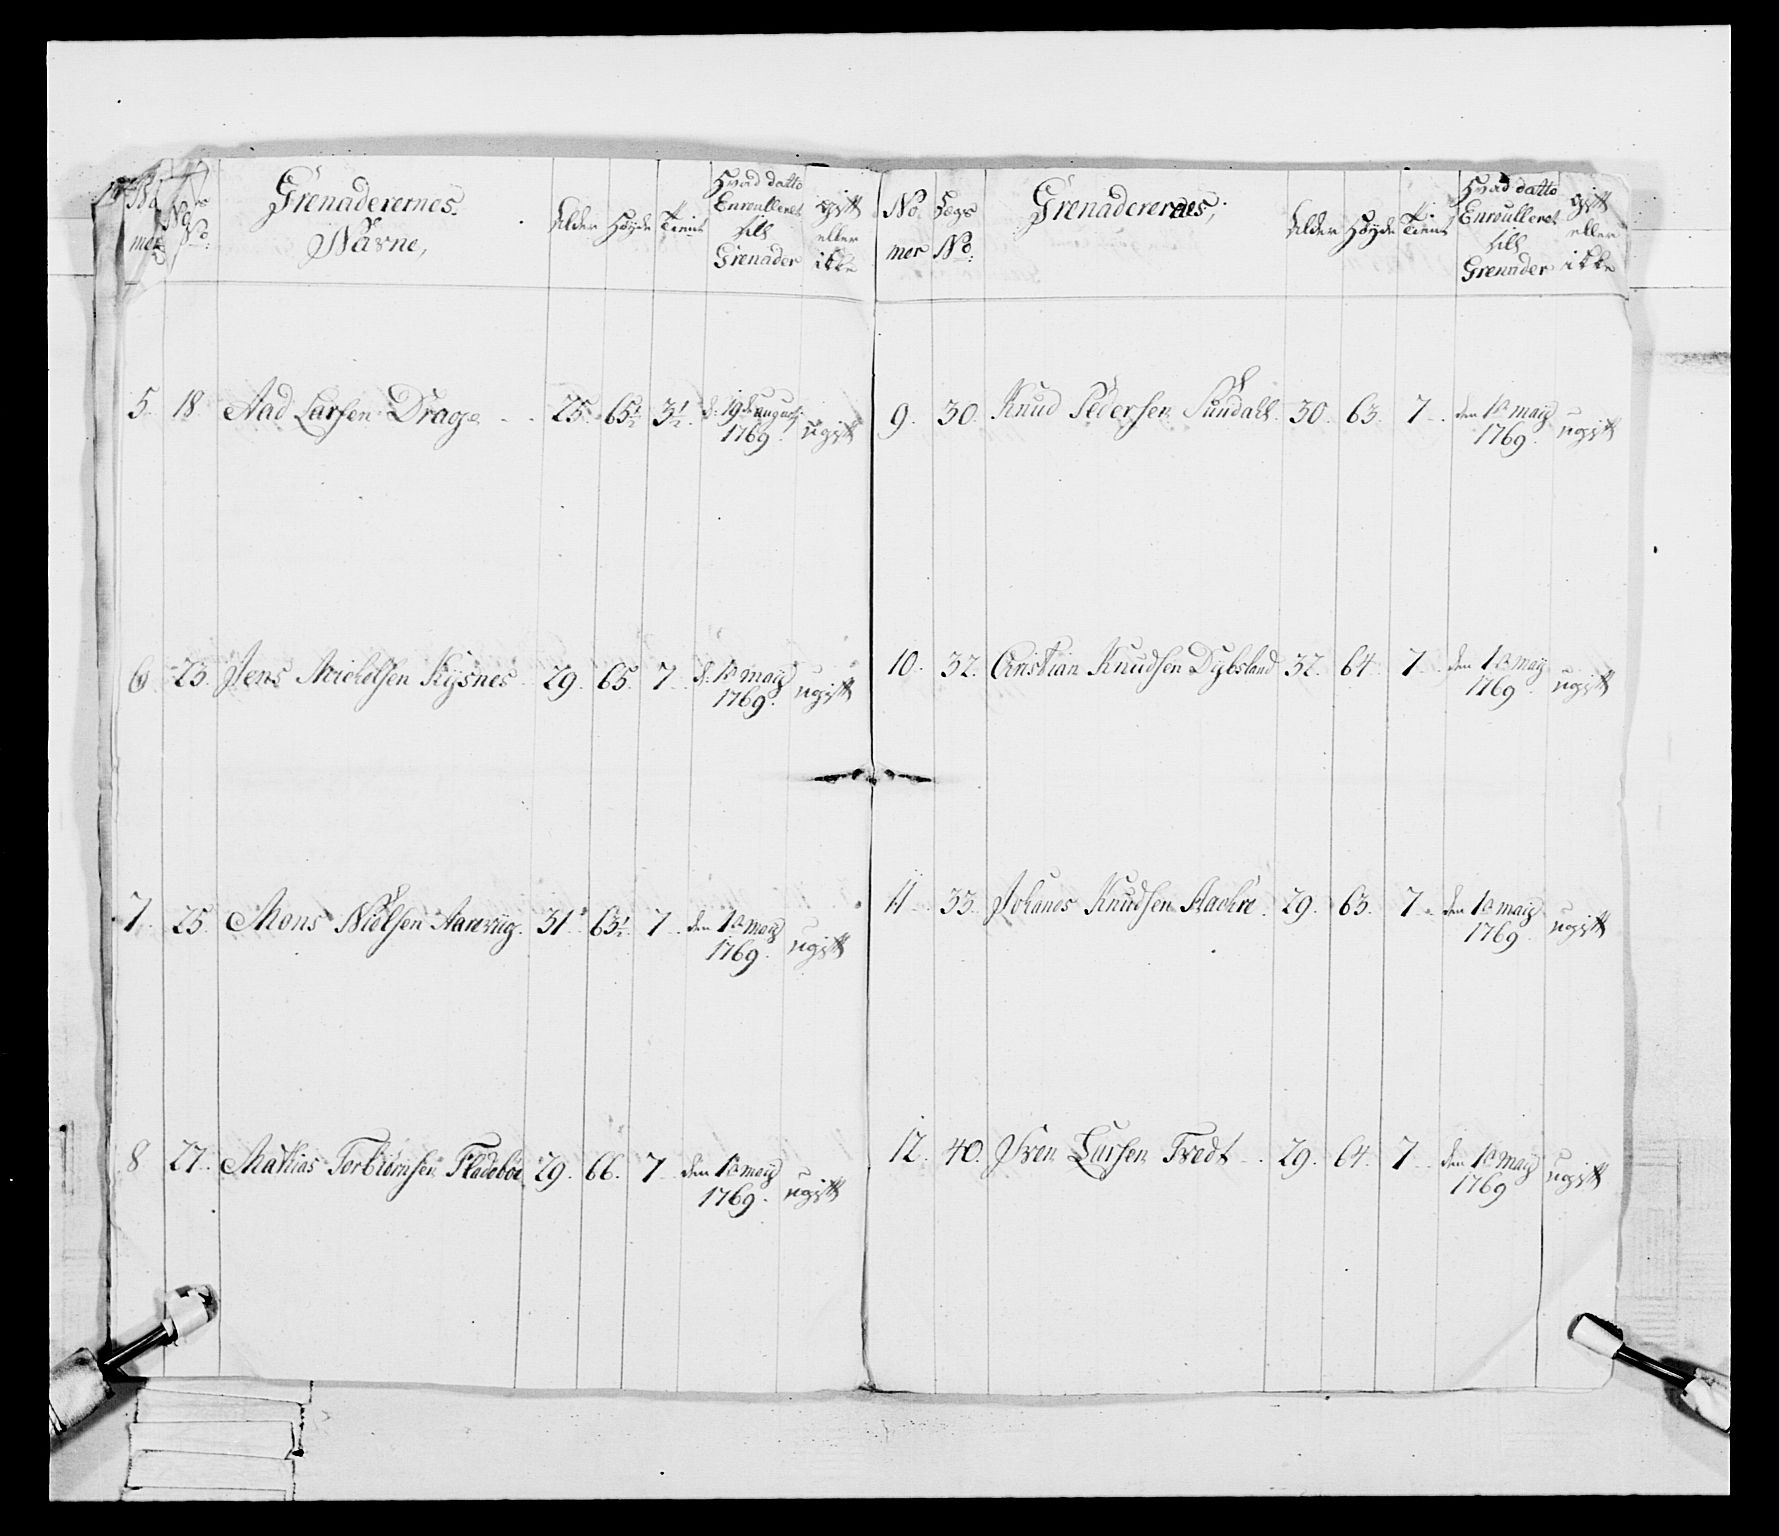 Grenaderernes
Navne,
Alder Høyde Tient
Hvad datto
Enroulleret
till
Grenader
gift
eller
ikke
5. 18. Aad Larsen Drage 25. 65½ 3½ d: 19 August 1769 ugift
6 23. Jens Michelsen Kysnes 29. 65. 7 d. 1te maij 1769. ugift
7. 25. Mons Nielsen Aarevig. 31. 63½ 7 den 1te maij 1769. ugift
8 27. Mathias Torbiørnsen Fladebøe 29. 66. 7 den 1te maij 1769. ugift
No
mer
Lægs
No:
Grenaderernes,
Alder Høyde Tient
Hvad datto
Enroulleret
till
Grenader
gift
eller
ikke
9. 30. Knud Pedersen Sundahl. 30. 63. 7 den 1te maij 1769. ugift
10. 32. Cristian Knudsen Dybsland 32. 64 7 den 1te maij 1769. ugift
11 33. Johanes Knudsen 29. 63. 7 den 1te maij 1769. ugift
12. 40. Iver Larsen Tvedt 29. 64. 7 den 1te maij 1769 ugift